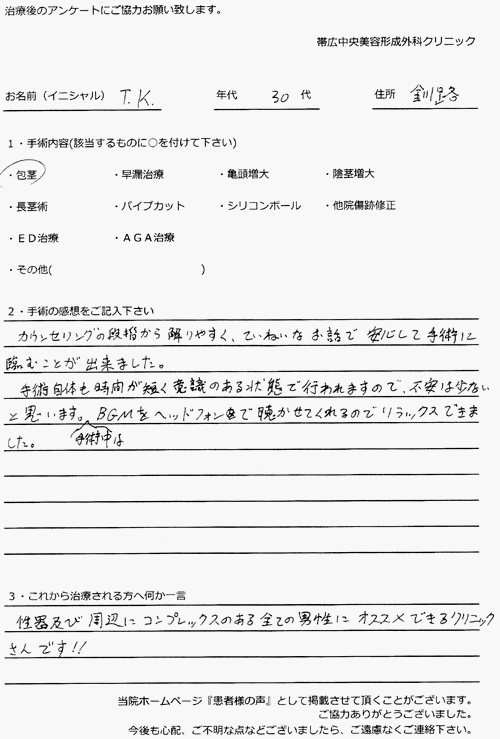 治療後のアンケートにご協力お願い致します。
帯広中央美容形成外科クリニック
お名前（イニシャル） T.K. 年代 30 代 住所 釧路
１・手術内容(該当するものに○を付けて下さい)
・包茎 ・早漏治療 ・亀頭増大 ・陰茎増大
・長茎術 ・パイプカット ・シリコンボール ・他院傷跡修正
・ＥＤ治療 ・ＡＧＡ治療
・その他( )
２・手術の感想をご記入下さい
カウンセリングの段階から解りやすく、ていねいなお話で安心して手術に
臨むことが出来ました。
手術自体も時間が短く意識のある状態で行われますので、不安は少ない
と思います。BGMをヘッドフォンで聴かせてくれるのでリラックスできま
した。 手術中は
３・これから治療される方へ何か一言
性器及び周辺にコンプレックスのある全ての男性にオススメできるクリニック
さんです!!
当院ホームページ『患者様の声』として掲載させて頂くことがございます。
ご協力ありがとうございました。
今後も心配、ご不明な点などございましたら、ご遠慮なくご連絡下さい。